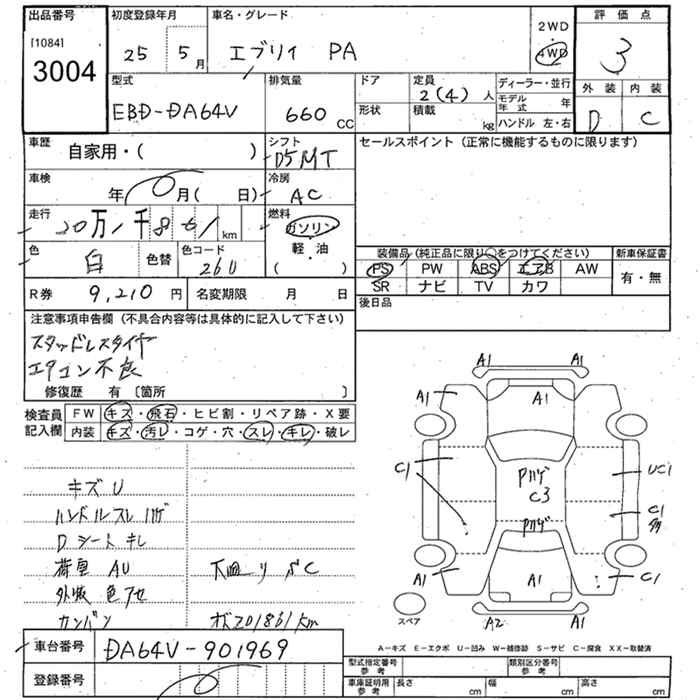 出品番号 初度登録年月 車名・グレード 2WD 評価点
[1084] 25 5月 エブリイ PA 4WD 3
3004
型式 排気量 ドア 定員 2(4)人 ディーラー・並行 外装 内装
EBD-DA64V 660 CC 形状 積載 kg モデル年式 年 D C
ハンドル 左・右
車歴 自家用・( ) シフト D5MT セールスポイント (正常に機能するものに限ります)
車検 年 月( 日) 冷房 AC
走行 20万1千861km 燃料 ガソリン
軽・油
( )
色 白 色替 色コード 26U
装備品 (純正品に限り○をつけてください) 新車保証書
PS PW ABS エアB AW 有・無
SR ナビ TV カワ
R券 9,210円 名変期限 月 日 後日品
注意事項申告欄 (不具合内容等は具体的に記入して下さい)
スタッドレスタイヤ
エアコン不良
修復歴 有 〔箇所 〕
検査員記入欄 FW キズ・飛石・ヒビ割・リペア跡・X要
内装 キズ・汚レ・コゲ・穴・スレ・キレ・破レ
キズU
ハンドルスレ ハゲ
Dシートキレ
荷室 AU 下廻り SC
外板 色アセ
カンバン 201861km
A1 A1
A1 A1 C1
C1 Pハゲ UC1
C3 C1
Pハゲ
A1 A1 C1
スペア A2 C1
A-キズ E-エクボ U-凹み W-補修跡 S-サビ C-腐食 XX-取替済
車台番号 DA64V-901969
登録番号
型式指定番号 参考 類別区分番号 参考
車庫証明用 参考 長さ cm 幅 cm 高さ cm